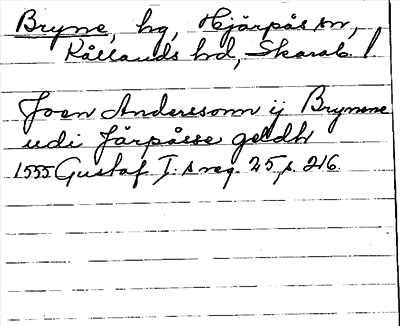 Bryne, hg, Hjärpås sn,
Kållands hd, Skarab l.
Joen Anderssonn ij Brynene
udi Järpåsse geldh
1555 Gustaf I:s reg. 25, s. 216.